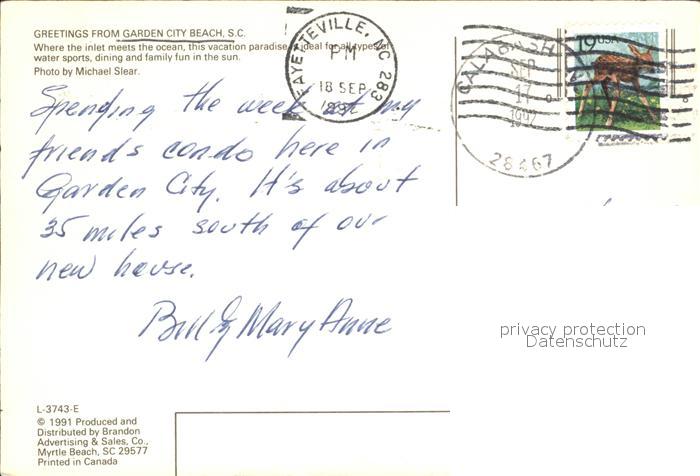 GREETINGS FROM GARDEN CITY BEACH, S.C.
Where the inlet meets the ocean, this vacation paradise is ideal for all types of
water sports, dining and family fun in the sun.
Photo by Michael Slear.
FAYETTEVILLE, NC 283
PM
18 SEP
1992
CALABASH
SEP
17
1992
28467
19 USA
Spending the week at my
friends condo here in
Garden City. It's about
35 miles south of our
new house.
Bill & Mary Anne
privacy protection
Datenschutz
L-3743-E
© 1991 Produced and
Distributed by Brandon
Advertising & Sales, Co.,
Myrtle Beach, SC 29577
Printed in Canada